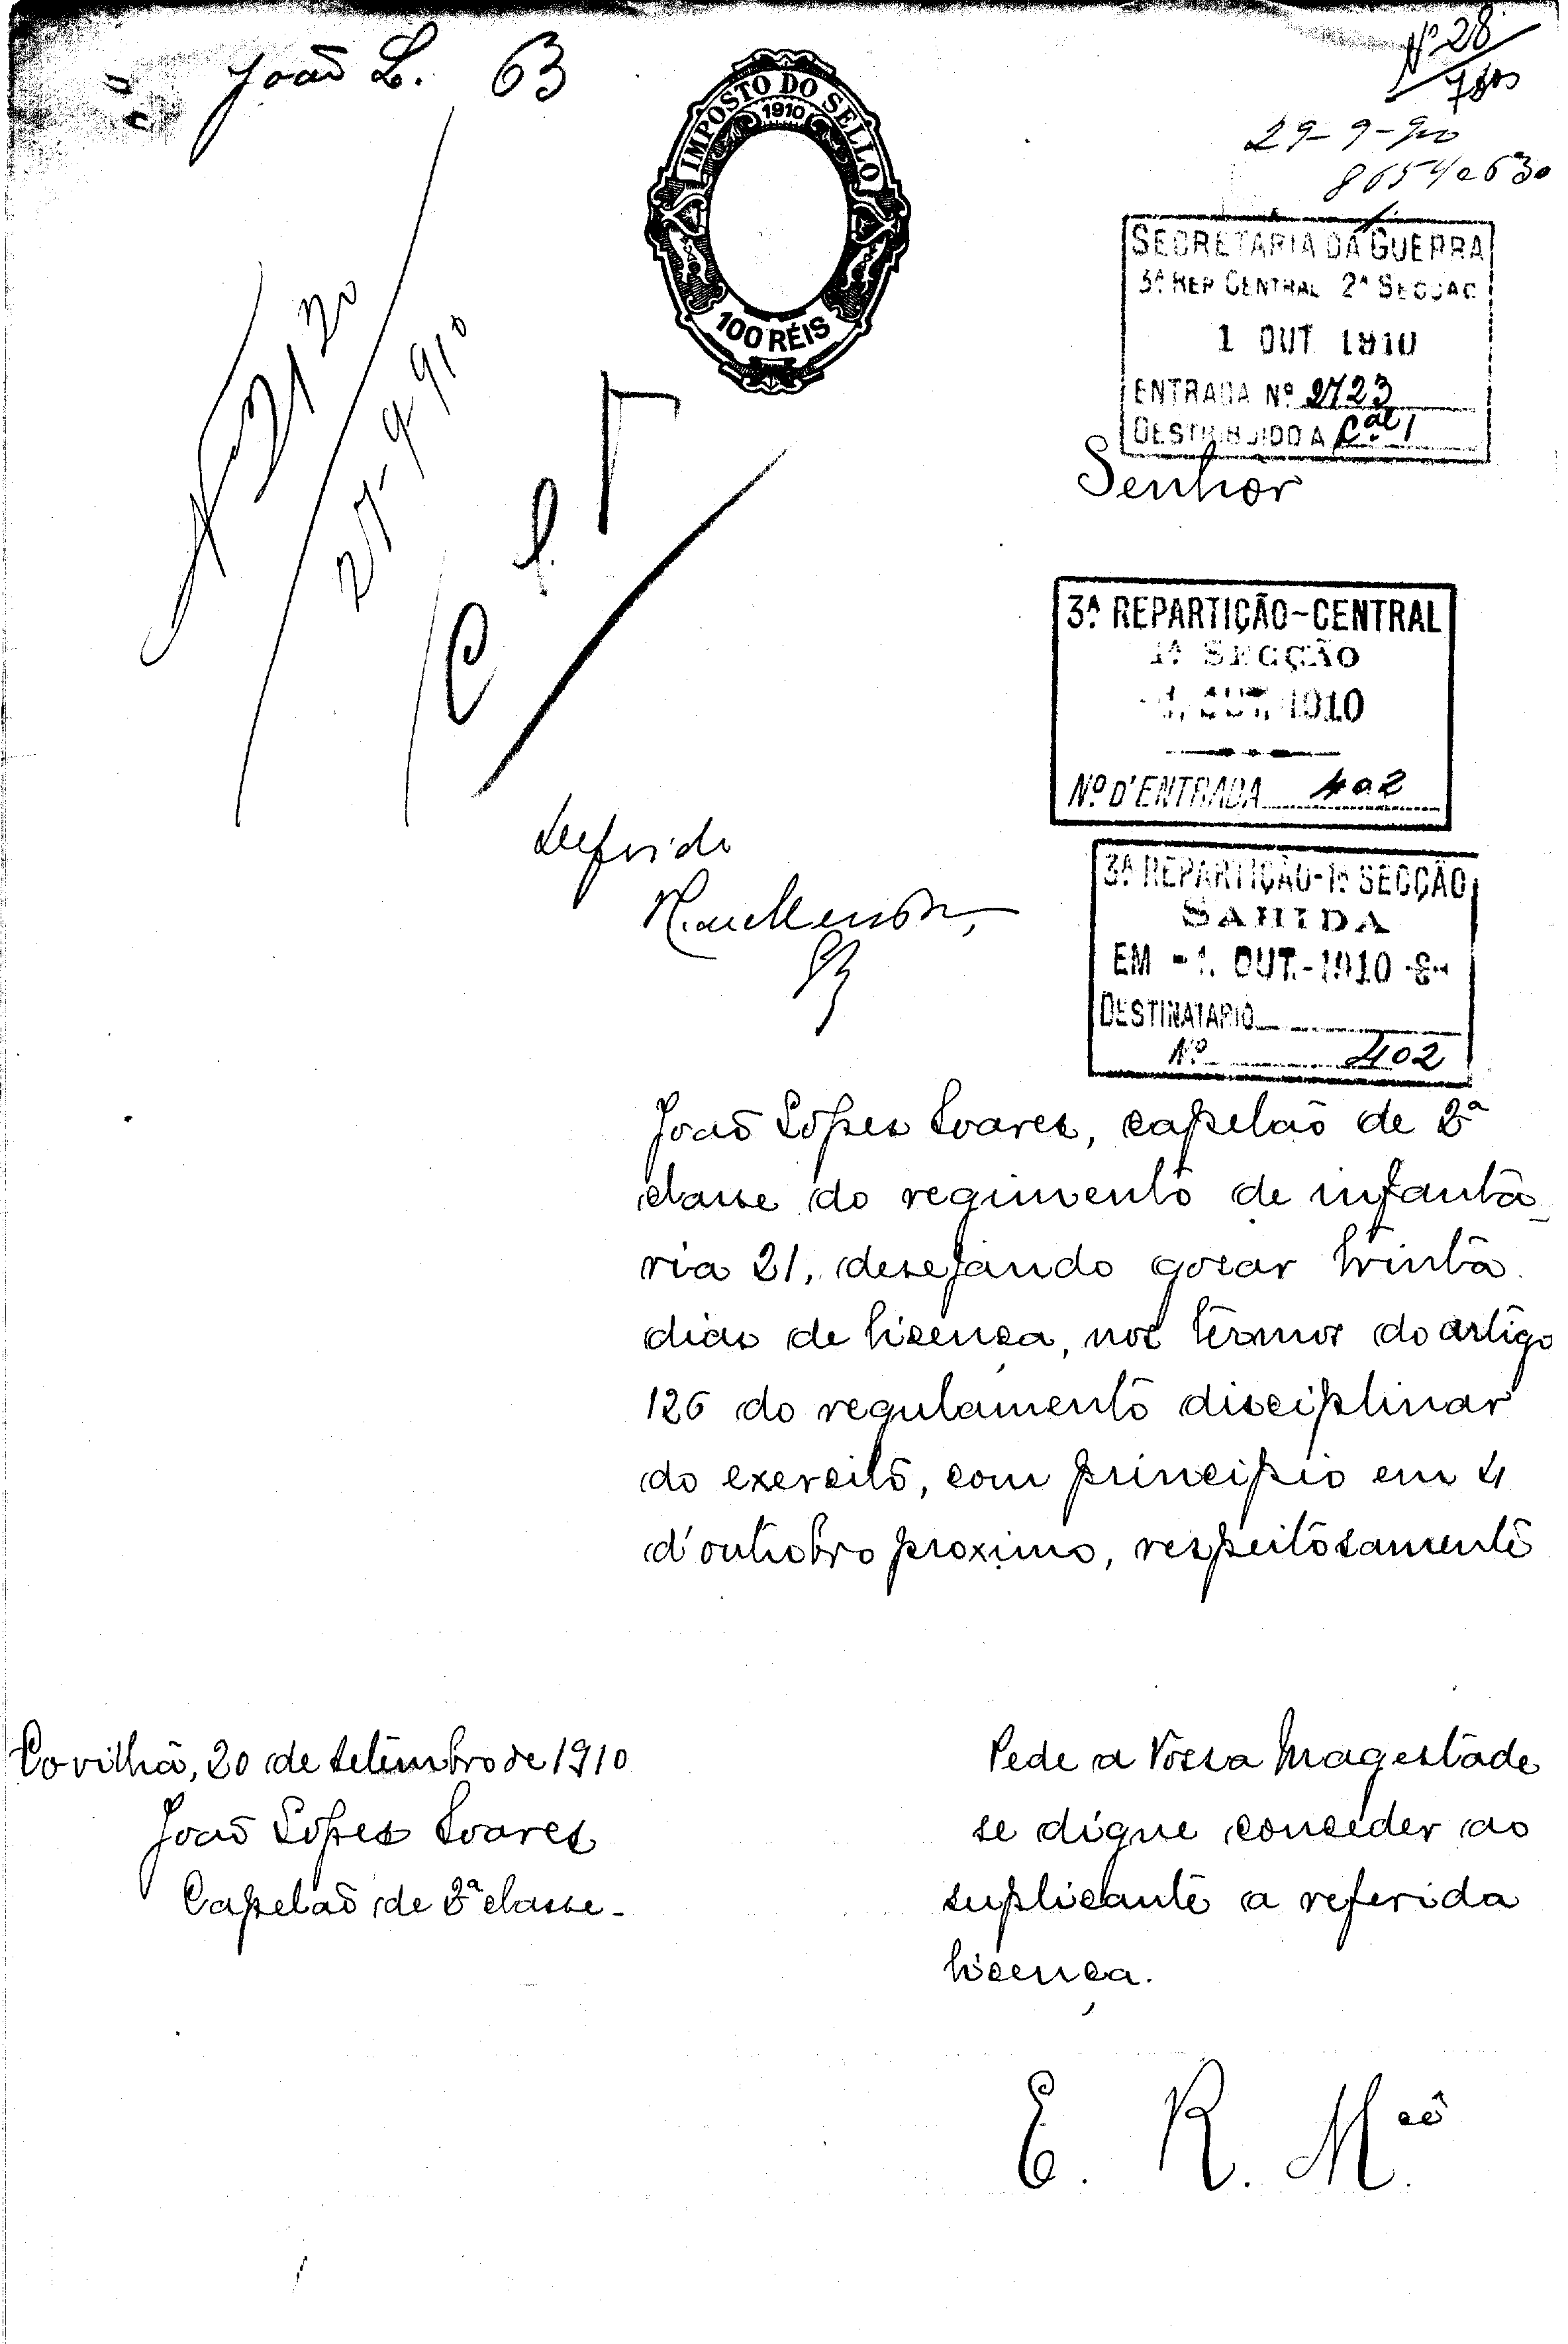 João L. 63
Nº 28
29-9-910
IMPOSTO DO SELLO
1910
100 RÉIS
SECRETARIA DA GUERRA
3ª REP CENTRAL 2ª SECÇÃO
1 OUT 1910
ENTRADA Nº 2723
DESTRIBUIDO A
Senhor
27-9-910
3ª REPARTIÇÃO-CENTRAL
1ª SECÇÃO
-1. OUT. 1910
Nº D'ENTRADA 402
Deferido
3ª REPARTIÇÃO-1ª SECÇÃO
SAHIDA
EM -1. OUT.-1910
DESTINATARIO
Nº 402
João Lopes Soares, capelão de 2ª
classe do regimento de infanta-
ria 21, desejando gosar trinta
dias de licença, nos termos do artigo
126 do regulamento disciplinar
do exercito, com principio em 4
d'outubro proximo, respeitosamente
Pede a Vossa Magestade
se digne conceder ao
suplicante a referida
licença.
Covilhã, 20 de setembro de 1910
João Lopes Soares
Capelão de 2ª classe.
E. R. M.cê